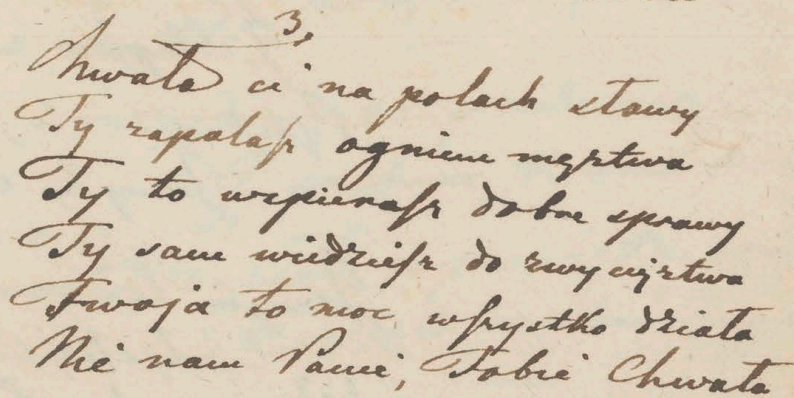 3.
Chwała ci na polach sławy
Ty zapalasz ogniem męztwa
Ty to wspierasz dobre sprawy
Ty sam wiedziesz do zwycięztwa
Twoja to moc wszystko działa
Nie nam Panie, Tobie Chwała